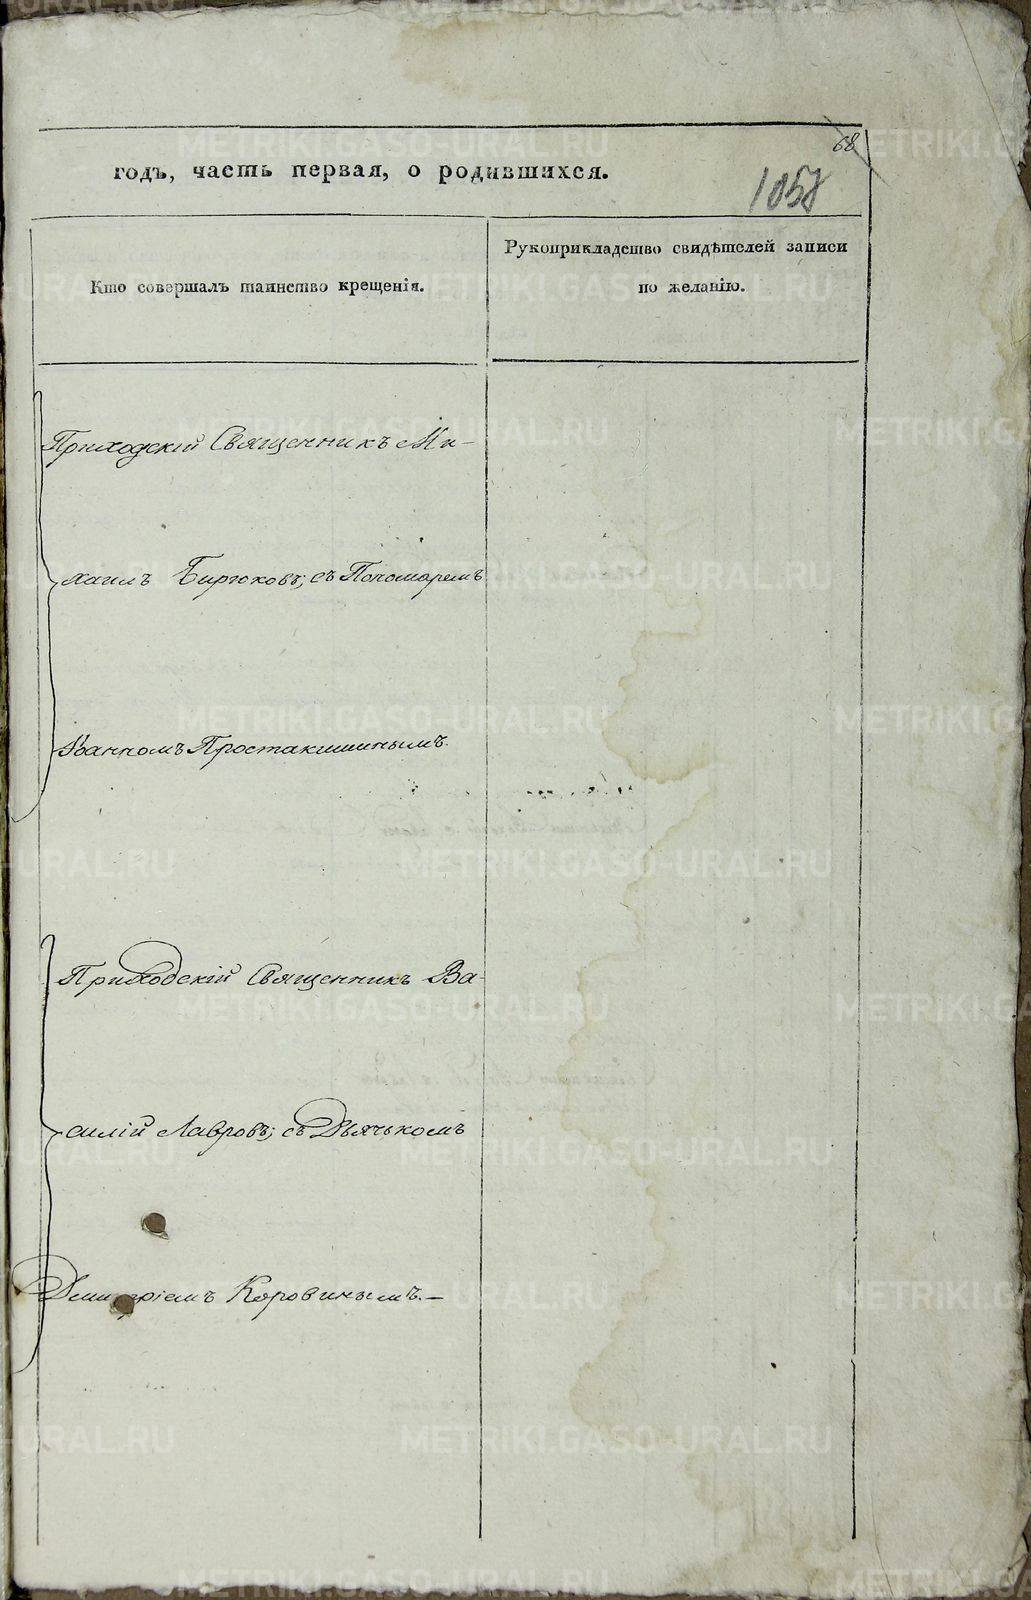 68
годъ, часть первая, о родившихся.
1058
Кто совершалъ таинство крещенія.
Рукоприкладство свидѣтелей записи
по желанію.
Приходскій Священникъ Ми-
хаилъ Бирюковъ; съ Пономаремъ
Іоанномъ Простакишинымъ.
Приходскій Священникъ Ва-
силій Лавровъ; съ Дьячькомъ
Димитріемъ Коровинымъ.—
METRIKI.GASO-URAL.RU